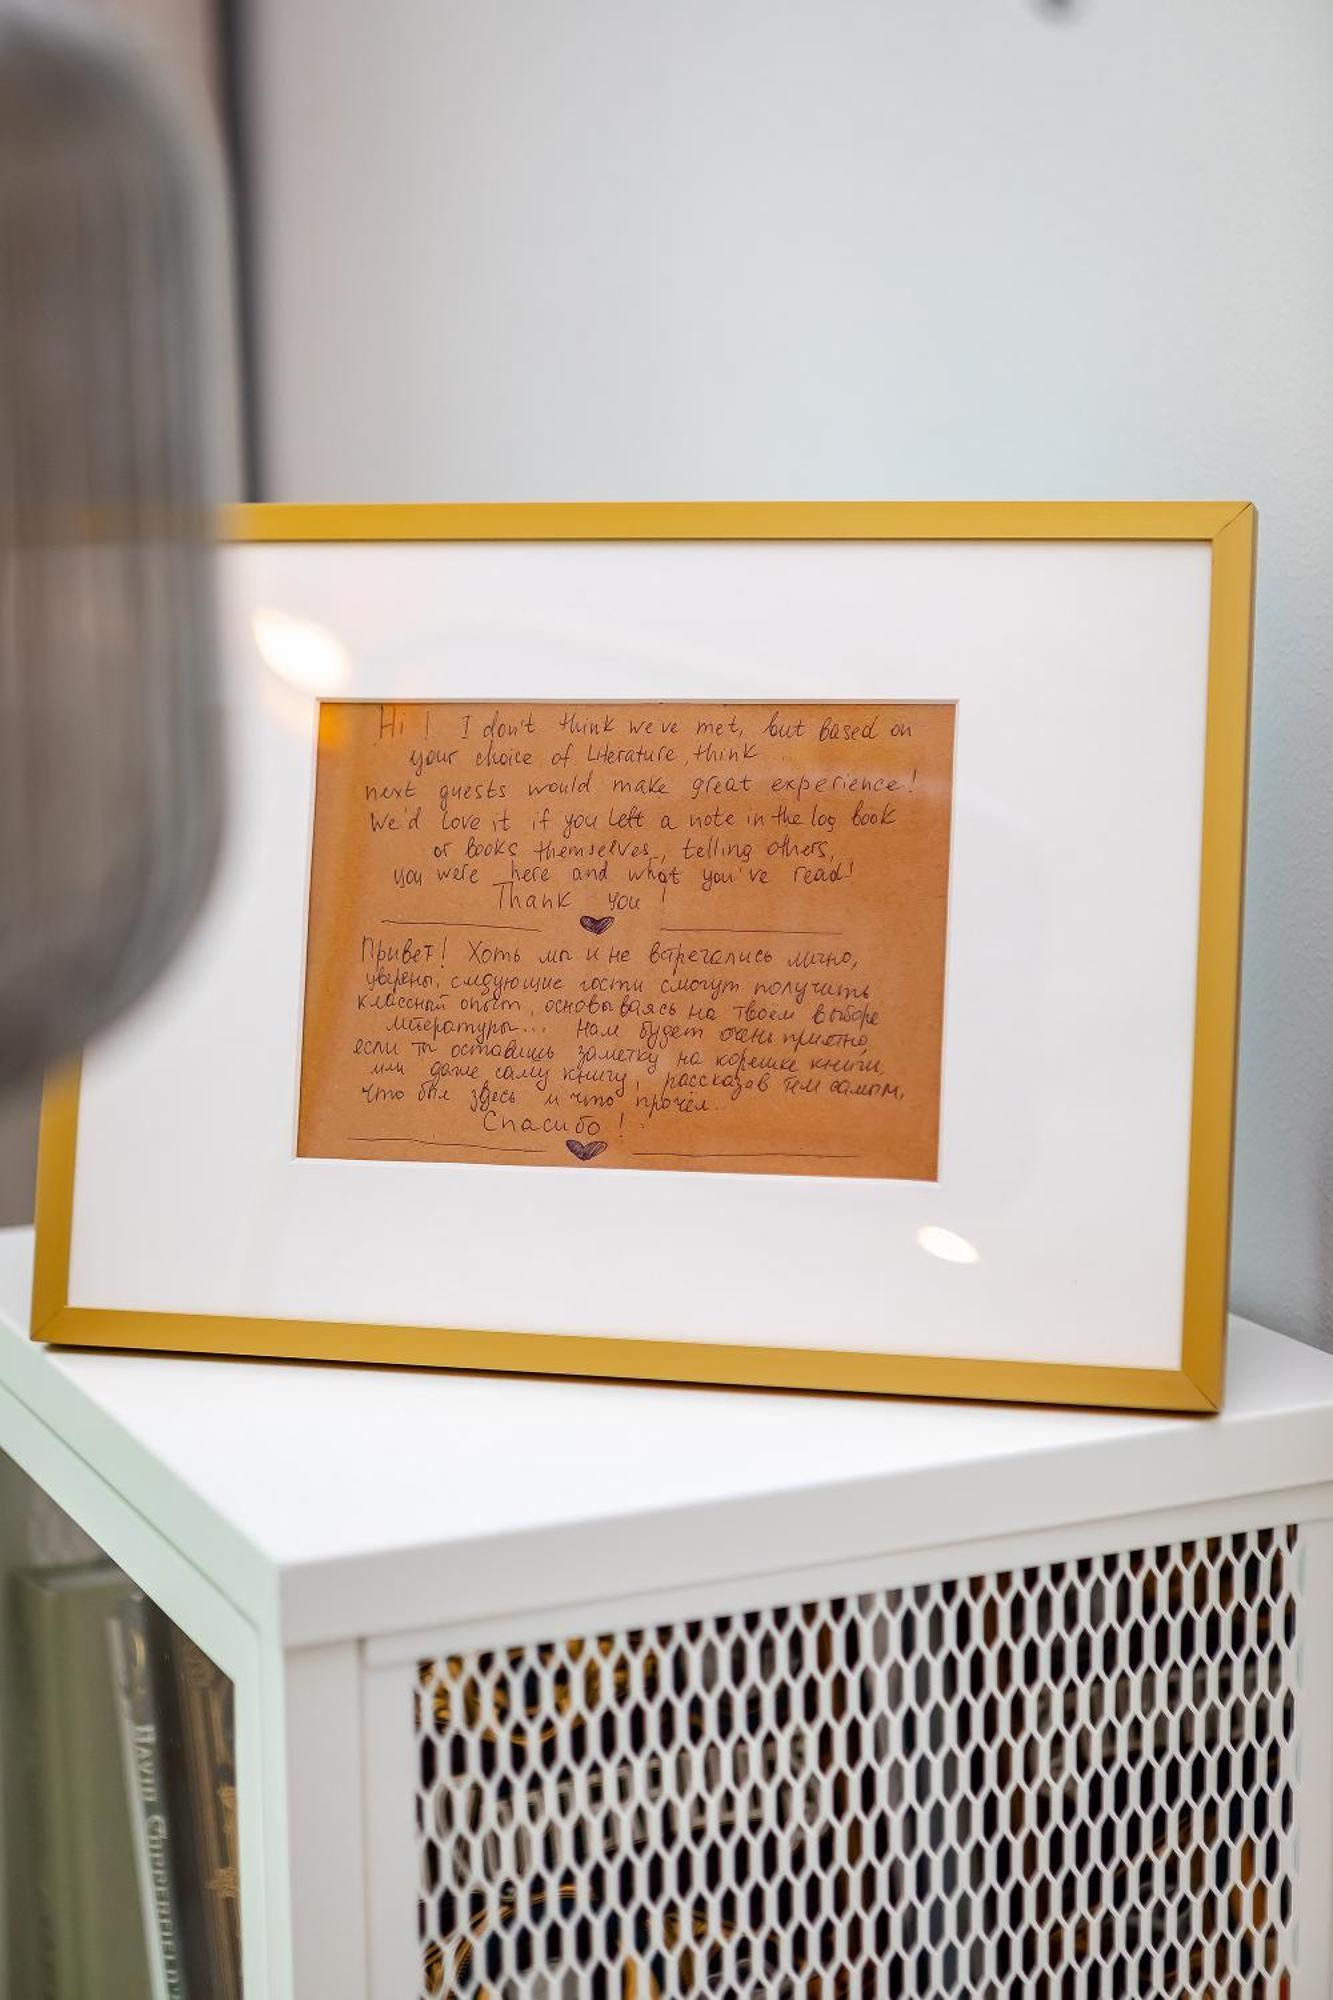 Hi! I don't think we've met, but based on
your choice of Literature, think...
next guests would make great experience!
We'd love it if you left a note in the log book
or books themselves, telling others,
you were here and what you've read!
Thank you!
Привет! Хоть мы и не встречались лично,
уверены, следующие гости смогут получить
классный опыт, основываясь на твоем выборе
литературы... Нам будет очень приятно,
если ты оставишь заметку на корешке книги,
или даже саму книгу, рассказав тем самым,
что был здесь и что прочёл.
Спасибо!
DAVID COPPERFIELD